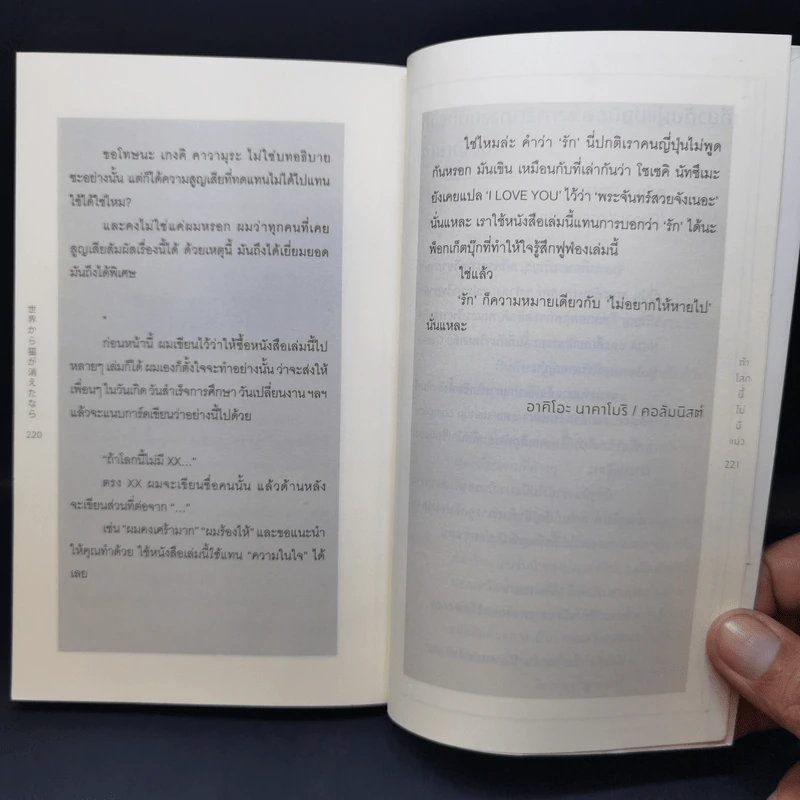 ขอโทษนะ เกงคิ คาวามุระ ไม่ใช่บทอธิบาย
ซะอย่างนั้น แต่ก็ได้ความสูญเสียที่ทดแทนไม่ได้ไปแทน
ใช้ได้ใช่ไหม?
และคงไม่ใช่แค่ผมหรอก ผมว่าทุกคนที่เคย
สูญเสียสัมผัสเรื่องนี้ได้ ด้วยเหตุนี้ มันถึงได้เยี่ยมยอด
มันถึงได้พิเศษ
ก่อนหน้านี้ ผมเขียนไว้ว่าให้ซื้อหนังสือเล่มนี้ไป
หลายๆ เล่มก็ได้ ผมเองก็ตั้งใจจะทำอย่างนั้น ว่าจะส่งให้
เพื่อนๆ ในวันเกิด วันสำเร็จการศึกษา วันเปลี่ยนงาน ฯลฯ
แล้วจะแนบการ์ดเขียนว่าอย่างนี้ไปด้วย
"ถ้าโลกนี้ไม่มี XX..."
ตรง XX ผมจะเขียนชื่อคนนั้น แล้วด้านหลัง
จะเขียนส่วนที่ต่อจาก "..."
เช่น "ผมคงเศร้ามาก" "ผมร้องไห้" และขอแนะนำ
ให้คุณทำด้วย ใช้หนังสือเล่มนี้ใช้แทน "ความในใจ" ได้
เลย
世界から猫が消えたなら
220
ใช่ไหมล่ะ คำว่า 'รัก' นี่ปกติเราคนญี่ปุ่นไม่พูด
กันหรอก มันเขิน เหมือนกับที่เล่ากันว่า โซเซคิ นัทซึเมะ
ยังเคยแปล 'I LOVE YOU' ไว้ว่า 'พระจันทร์สวยจังเนอะ'
นั่นแหละ เราใช้หนังสือเล่มนี้แทนการบอกว่า 'รัก' ได้นะ
พ็อกเก็ตบุ๊กที่ทำให้ใจรู้สึกฟูฟ่องเล่มนี้
ใช่แล้ว
'รัก' ก็ความหมายเดียวกับ 'ไม่อยากให้หายไป'
นั่นแหละ
อาคิโอะ นาคาโมริ / คอลัมนิสต์
ถ้า
โลก
นี้
ไม่
มี
แมว
221